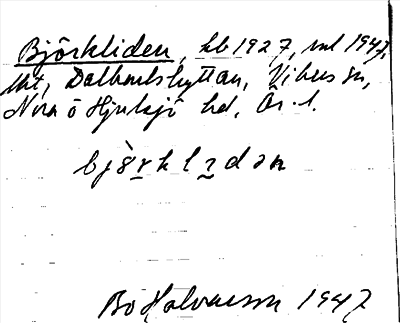 Björkliden, kb 1927, ml 1947,
lht, Dalkarlshyttan, Vikers sn,
Nora o Hjulsjö hd, Ör. l.
bjö̀rklidən
Bo Halvarsson 1947